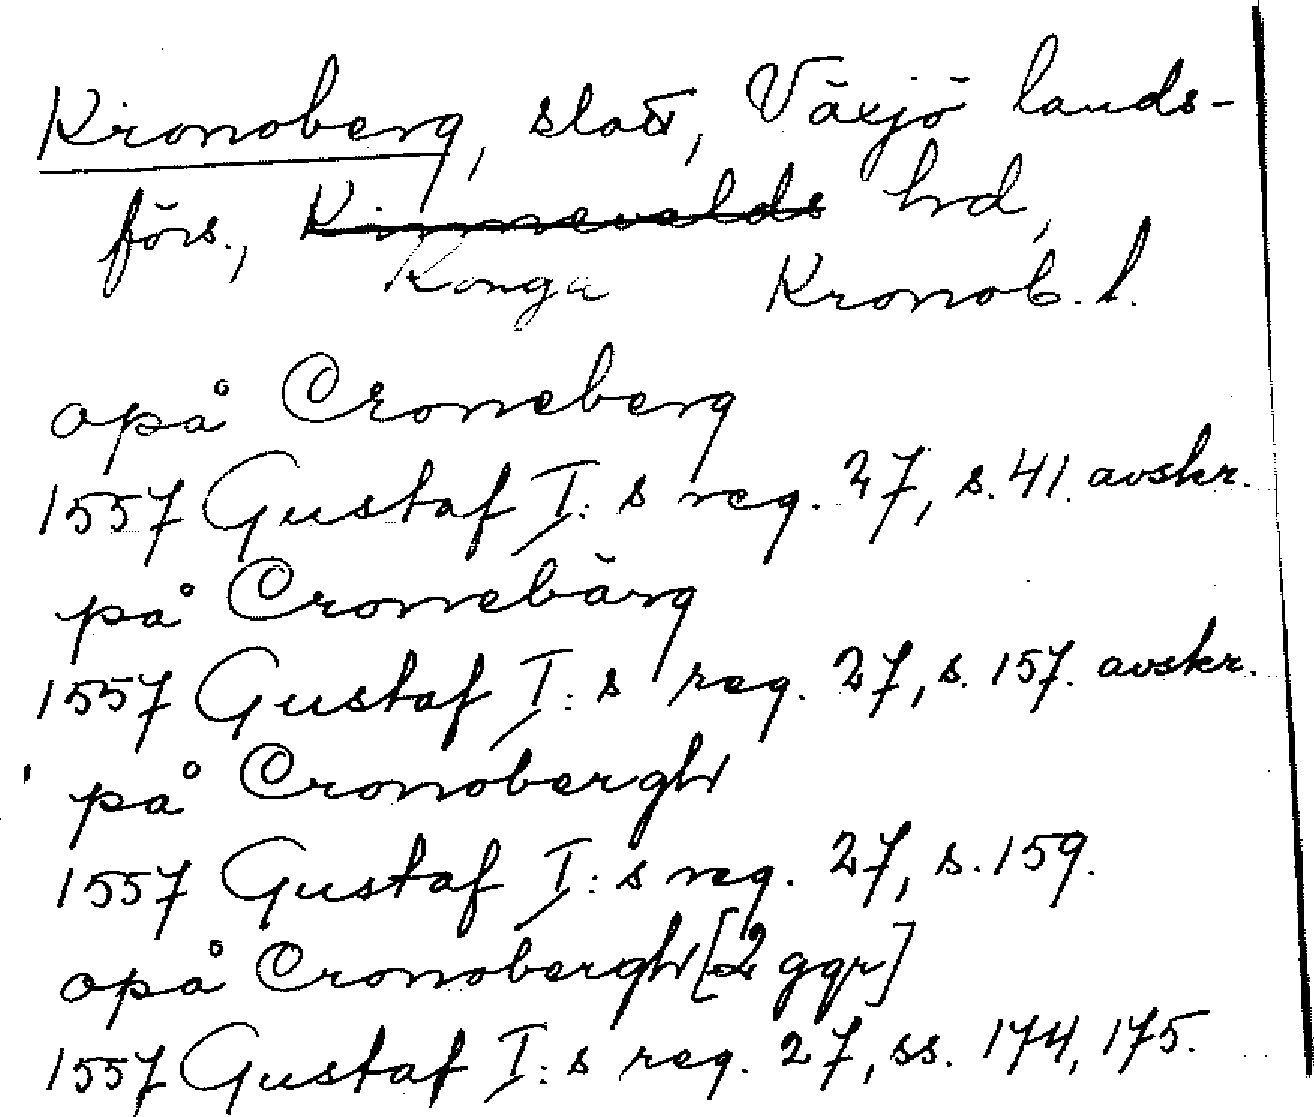 Kronoberg, slott, Växjö lands-
förs., Kinnevalds hrd,
Konga Kronob. l.
opå Croneberg
1557 Gustaf I:s reg. 27, s. 41. avskr.
på Cronebärg
1557 Gustaf I:s reg. 27, s. 157. avskr.
på Cronobergh
1557 Gustaf I:s reg. 27, s. 159.
opå Cronobergh [2 ggr]
1557 Gustaf I:s reg. 27, ss. 174, 175.